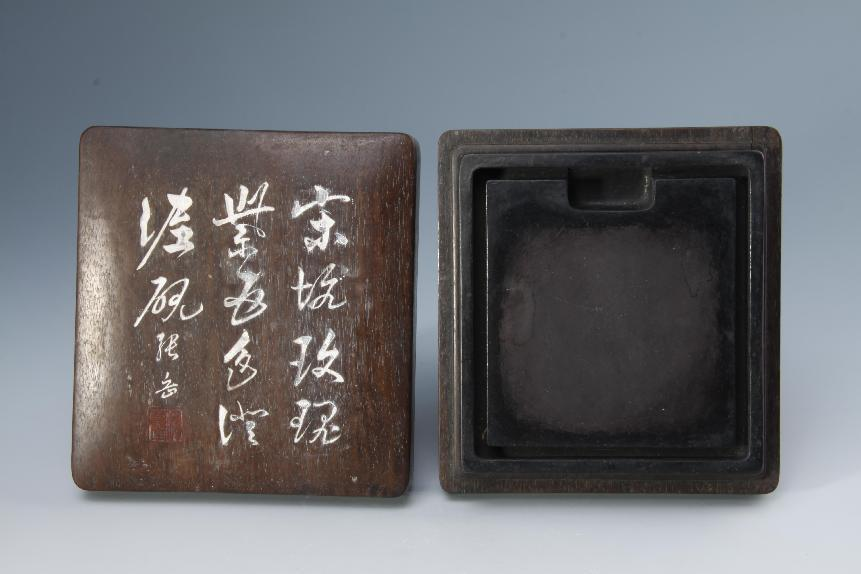 宋坑玫瑰
紫五色澄
泥砚
张岳